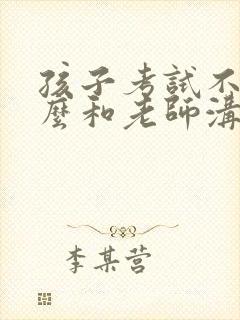 孩子考試不
麼和老師溝
李某营